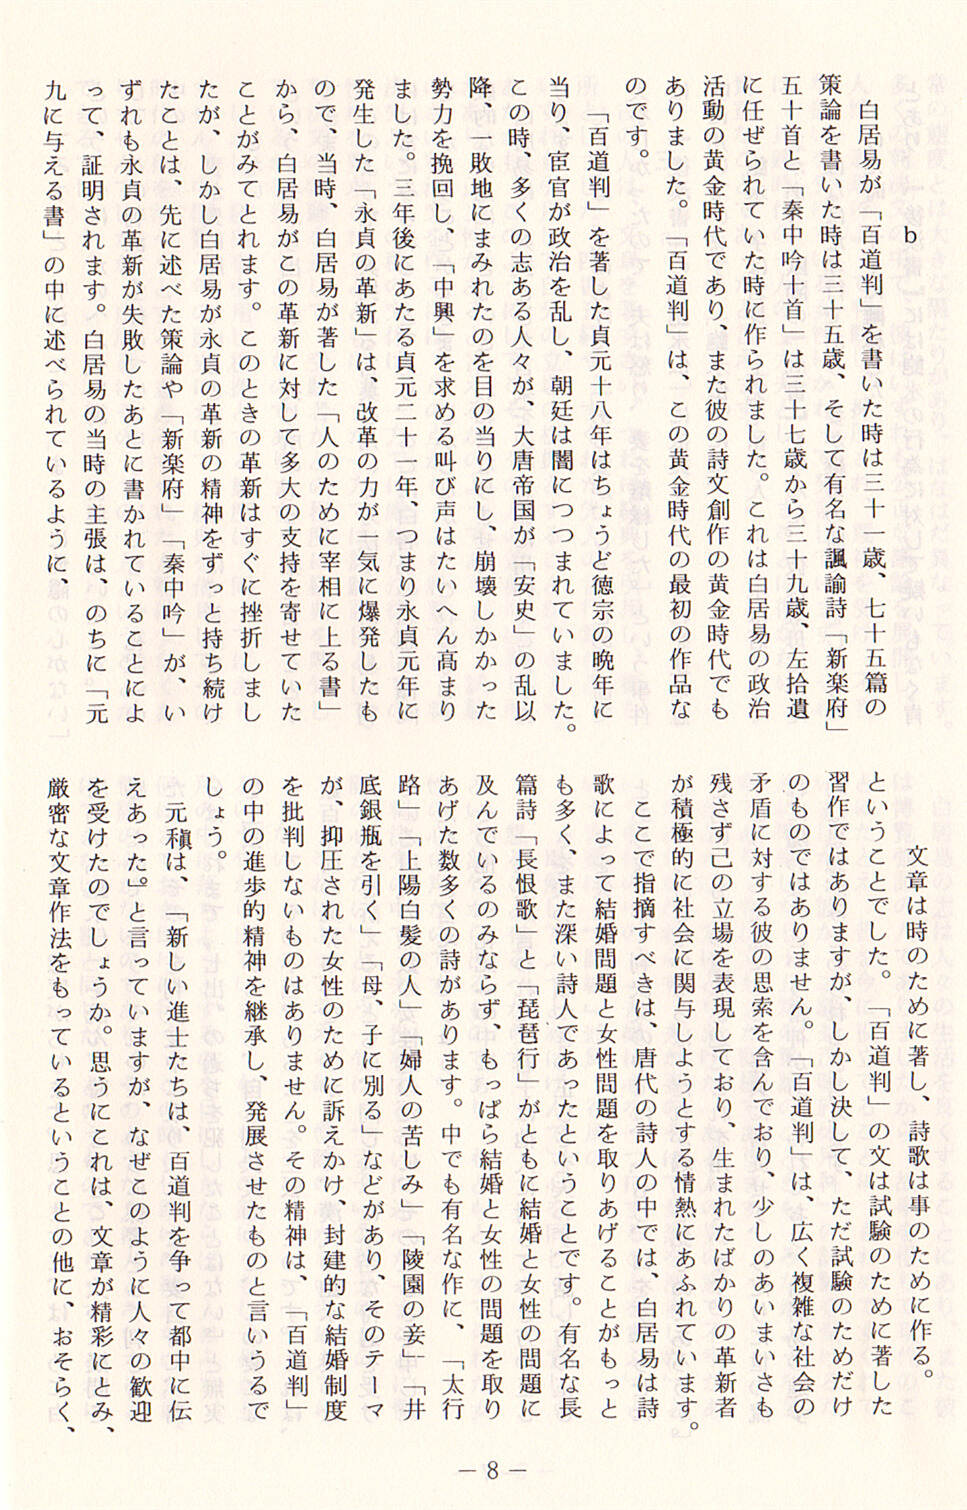 b
白居易が「百道判」を書いた時は三十一歳、七十五篇の
策論を書いた時は三十五歳、そして有名な諷諭詩「新楽府」
五十首と「秦中吟十首」は三十七歳から三十九歳、左拾遺
に任ぜられていた時に作られました。これは白居易の政治
活動の黄金時代であり、また彼の詩文創作の黄金時代でも
ありました。「百道判」は、この黄金時代の最初の作品な
のです。
「百道判」を著した貞元十八年はちょうど徳宗の晩年に
当り、宦官が政治を乱し、朝廷は闇につつまれていました。
この時、多くの志ある人々が、大唐帝国が「安史」の乱以
降、一敗地にまみれたのを目の当りにし、崩壊しかかった
勢力を挽回し、「中興」を求める叫び声はたいへん高まり
ました。三年後にあたる貞元二十一年、つまり永貞元年に
発生した「永貞の革新」は、改革の力が一気に爆発したも
ので、当時、白居易が著した「人のために宰相に上る書」
から、白居易がこの革新に対して多大の支持を寄せていた
ことがみてとれます。このときの革新はすぐに挫折しまし
たが、しかし白居易が永貞の革新の精神をずっと持ち続け
たことは、先に述べた策論や「新楽府」「秦中吟」が、い
ずれも永貞の革新が失敗したあとに書かれていることによ
って、証明されます。白居易の当時の主張は、のちに「元
九に与える書」の中に述べられているように、
文章は時のために著し、詩歌は事のために作る。
ということでした。「百道判」の文は試験のために著した
習作ではありますが、しかし決して、ただ試験のためだけ
のものではありません。「百道判」は、広く複雑な社会の
矛盾に対する彼の思索を含んでおり、少しのあいまいさも
残さず己の立場を表現しており、生まれたばかりの革新者
が積極的に社会に関与しようとする情熱にあふれています。
ここで指摘すべきは、唐代の詩人の中では、白居易は詩
歌によって結婚問題と女性問題を取りあげることがもっと
も多く、また深い詩人であったということです。有名な長
篇詩「長恨歌」と「琵琶行」がともに結婚と女性の問題に
及んでいるのみならず、もっぱら結婚と女性の問題を取り
あげた数多くの詩があります。中でも有名な作に、「太行
路」「上陽白髪の人」「婦人の苦しみ」「陵園の妾」「井
底銀瓶を引く」「母、子に別る」などがあり、そのテーマ
が、抑圧された女性のために訴えかけ、封建的な結婚制度
を批判しないものはありません。その精神は、「百道判」
の中の進歩的精神を継承し、発展させたものと言いうるで
しょう。
元稹は、「新しい進士たちは、百道判を争って都中に伝
えあった。」と言っていますが、なぜこのように人々の歓迎
を受けたのでしょうか。思うにこれは、文章が精彩にとみ、
厳密な文章作法をもっているということの他に、おそらく、
— 8 —